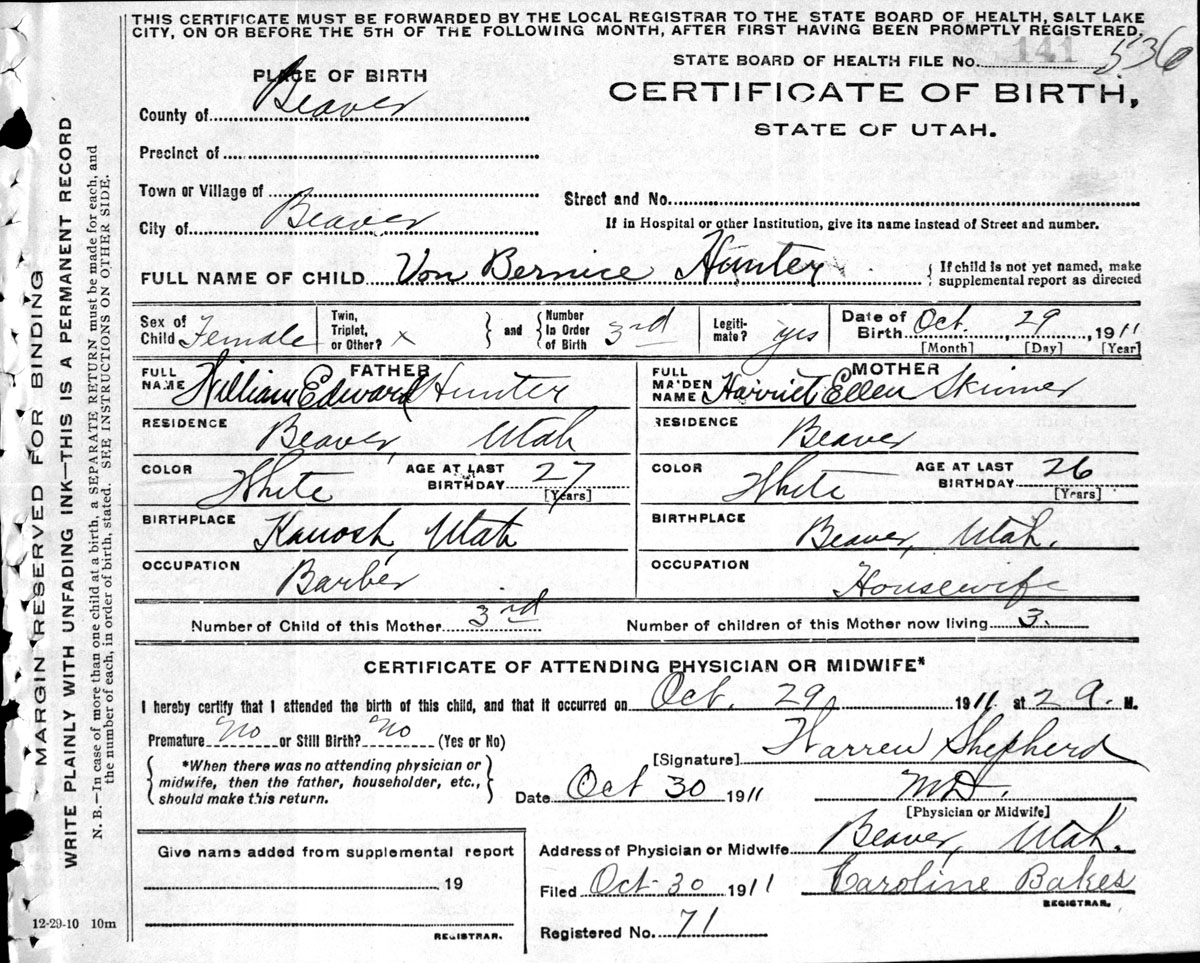 THIS CERTIFICATE MUST BE FORWARDED BY THE LOCAL REGISTRAR TO THE STATE BOARD OF HEALTH, SALT LAKE
CITY, ON OR BEFORE THE 5TH OF THE FOLLOWING MONTH, AFTER FIRST HAVING BEEN PROMPTLY REGISTERED.
STATE BOARD OF HEALTH FILE No. 141 536
PLACE OF BIRTH
CERTIFICATE OF BIRTH,
STATE OF UTAH.
County of Beaver
Precinct of
Town or Village of
Street and No.
City of Beaver
If in Hospital or other Institution, give its name instead of Street and number.
FULL NAME OF CHILD Von Bernice Hunter
If child is not yet named, make
supplemental report as directed
Sex of Child Female
Twin, Triplet, or Other? x
and
Number In Order of Birth 3rd
Legiti-mate? yes
Date of Birth Oct. 29, 1911
[Month] [Day] [Year]
FATHER
FULL NAME William Edward Hunter
RESIDENCE Beaver, Utah
COLOR White
AGE AT LAST BIRTHDAY 27
[Years]
BIRTHPLACE Kanosh, Utah
OCCUPATION Barber
MOTHER
FULL MAIDEN NAME Harriet Ellen Skinner
RESIDENCE Beaver
COLOR White
AGE AT LAST BIRTHDAY 26
[Years]
BIRTHPLACE Beaver, Utah.
OCCUPATION Housewife
Number of Child of this Mother 3rd
Number of children of this Mother now living 3.
CERTIFICATE OF ATTENDING PHYSICIAN OR MIDWIFE*
I hereby certify that I attended the birth of this child, and that it occurred on Oct. 29 1911. at 2 a. M.
Premature no or Still Birth? no (Yes or No)
*When there was no attending physician or
midwife, then the father, householder, etc.,
should make this return.
[Signature] Warren Shepherd
Date Oct 30 1911
M.D.
[Physician or Midwife]
Give name added from supplemental report
19
REGISTRAR.
Address of Physician or Midwife Beaver, Utah.
Filed Oct 30 1911
Caroline Bakes
REGISTRAR.
Registered No. 71
12-29-10 10m
MARGIN RESERVED FOR BINDING
WRITE PLAINLY WITH UNFADING INK—THIS IS A PERMANENT RECORD
N. B.—In case of more than one child at a birth, a SEPARATE RETURN must be made for each, and
the number of each, in order of birth, stated. SEE INSTRUCTIONS ON OTHER SIDE.